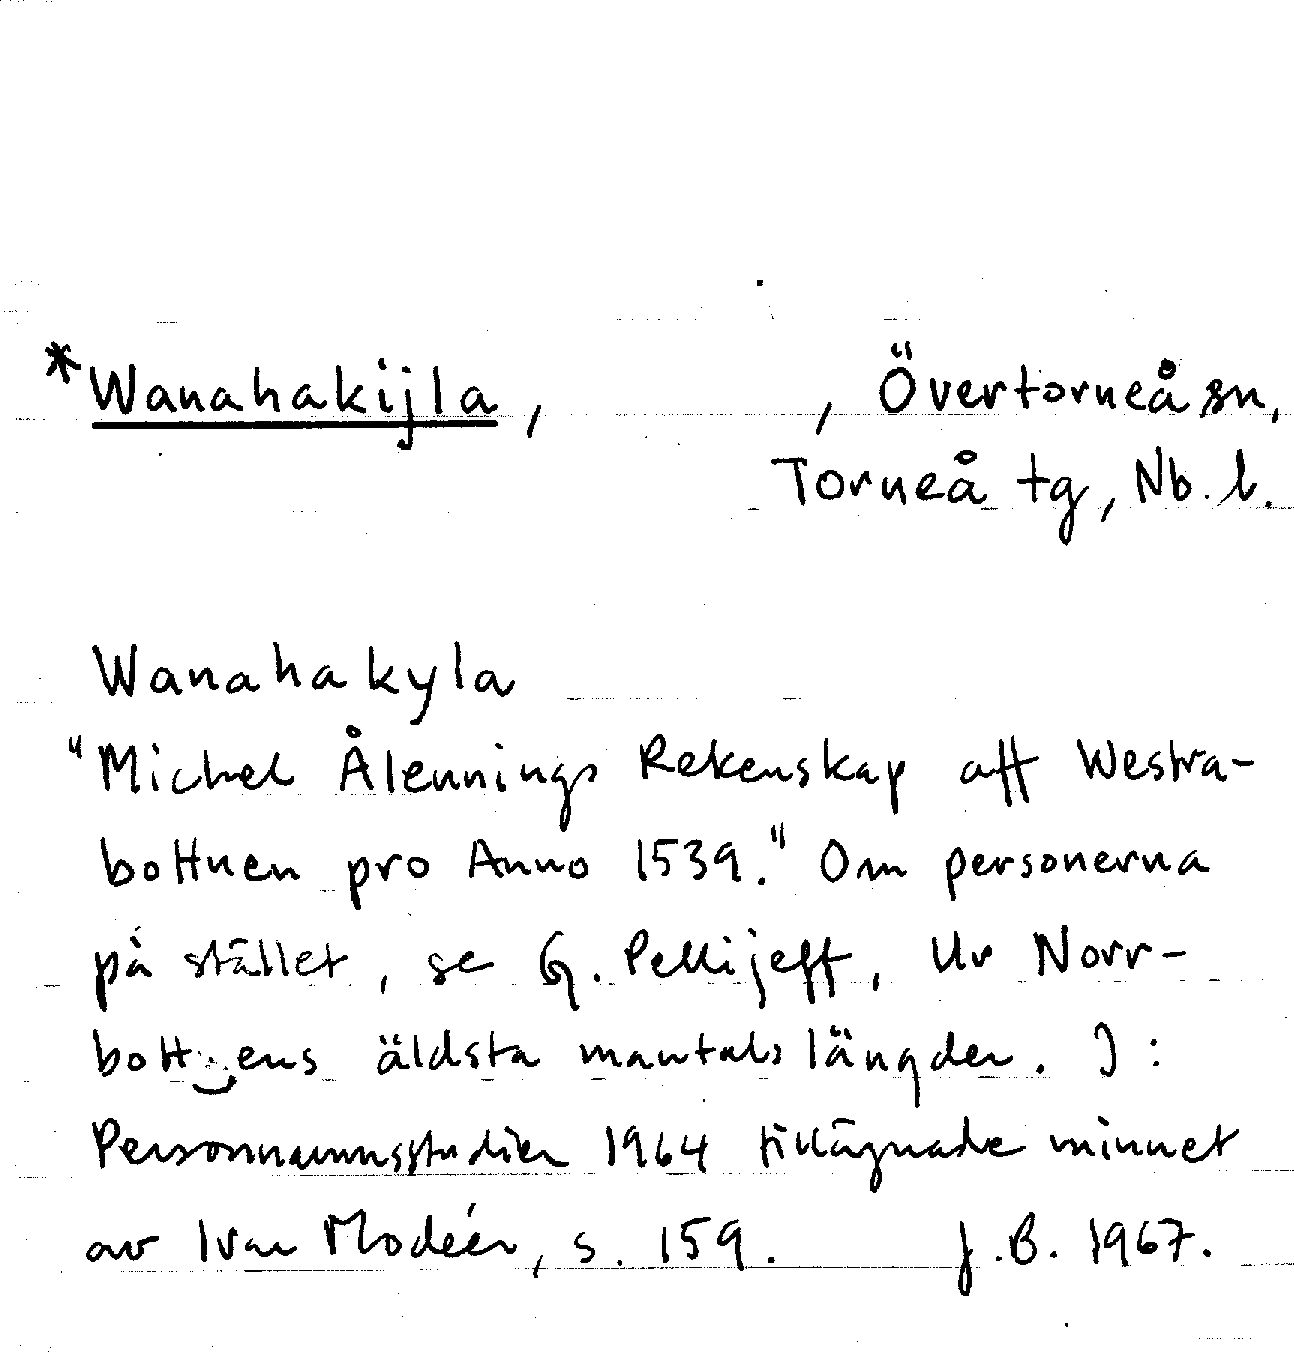 *Wanahakijla, , Övertorneå sn,
Torneå tg, Nb. l.
Wanahakyla
"Michel Ålennings Rekenskap aff Westra-
bottnen pro Anno 1539." Om personerna
på stället, se G. Pellijeff, Ur Norr-
bottens äldsta mantalslängder. I:
Personnamnsstudier 1964 tillägnade minnet
av Ivar Modéer, s. 159. J.B. 1967.